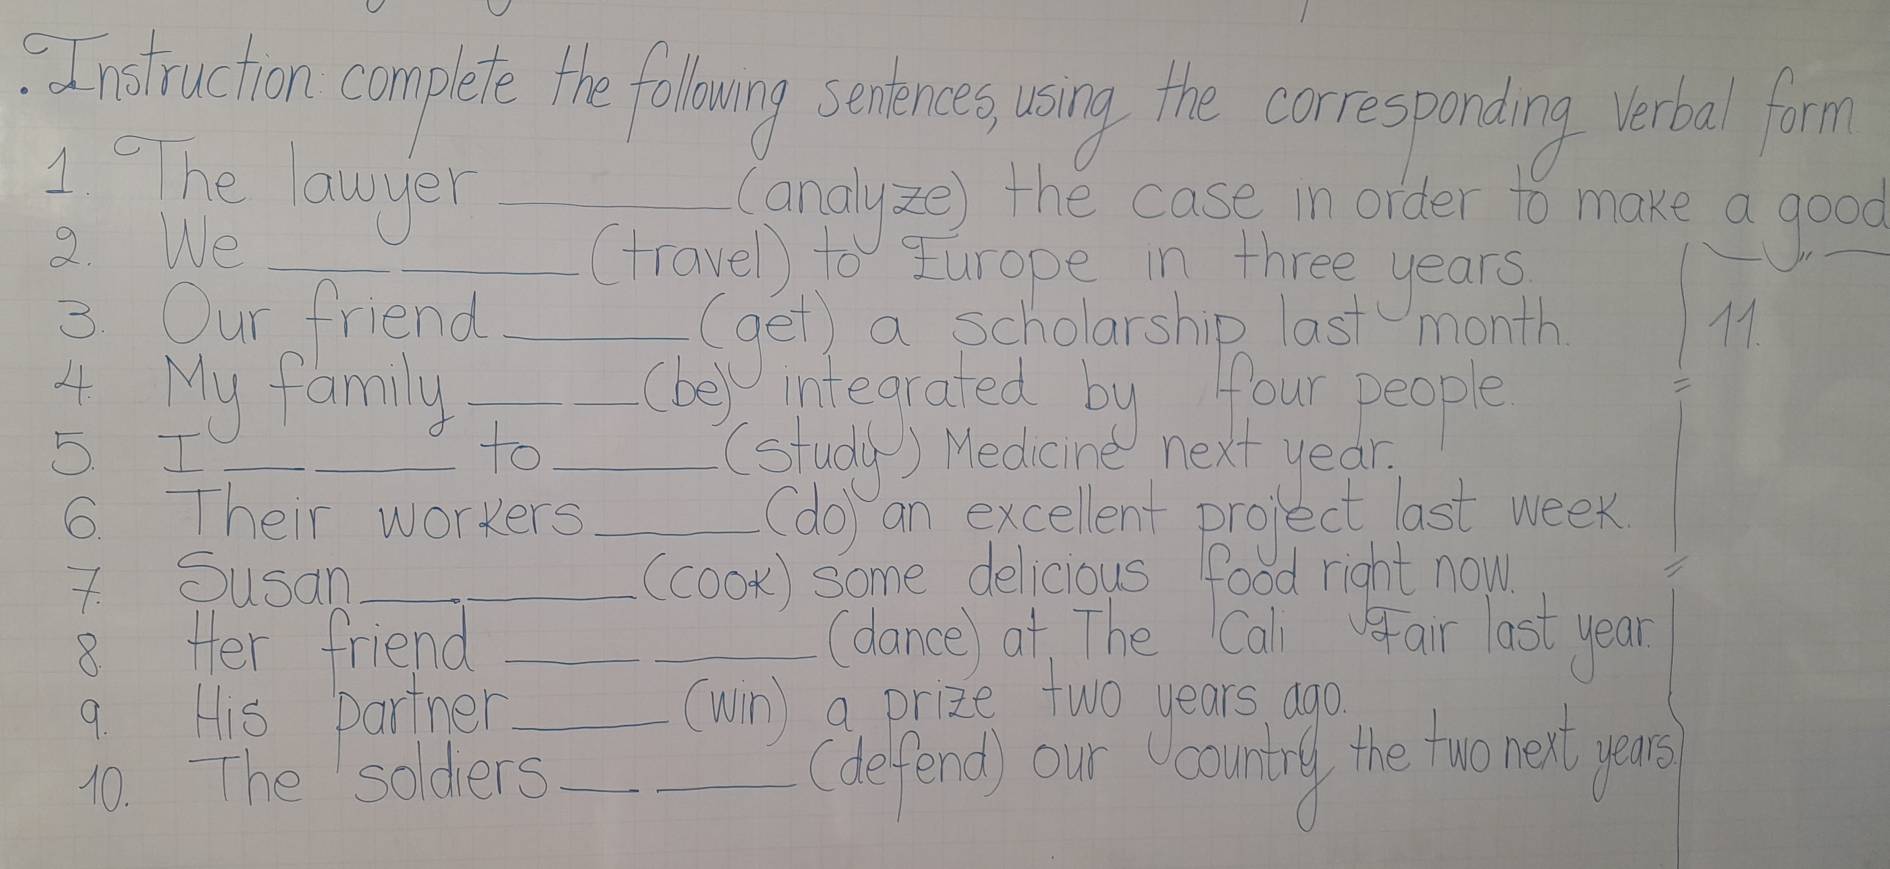 . Instruction: complete the following sentences, using the corresponding verbal form
1. The lawyer ________ (analyze) the case in order to make a good
2. We ____ ______ (travel) to Europe in three years.
3. Our friend ______ (get) a scholarship last month. 11.
4. My family ___ ___ (be) integrated by four people.
5. I ___ _____ to ______ (study) Medicine next year.
6. Their workers ______ (do) an excellent project last week.
7. Susan ____ ______ (cook) some delicious food right now.
8. Her friend _____ ______ (dance) at The Cali Fair last year.
9. His partner ______ (win) a prize two years ago.
10. The soldiers ___ _____ (defend) our country the two next years